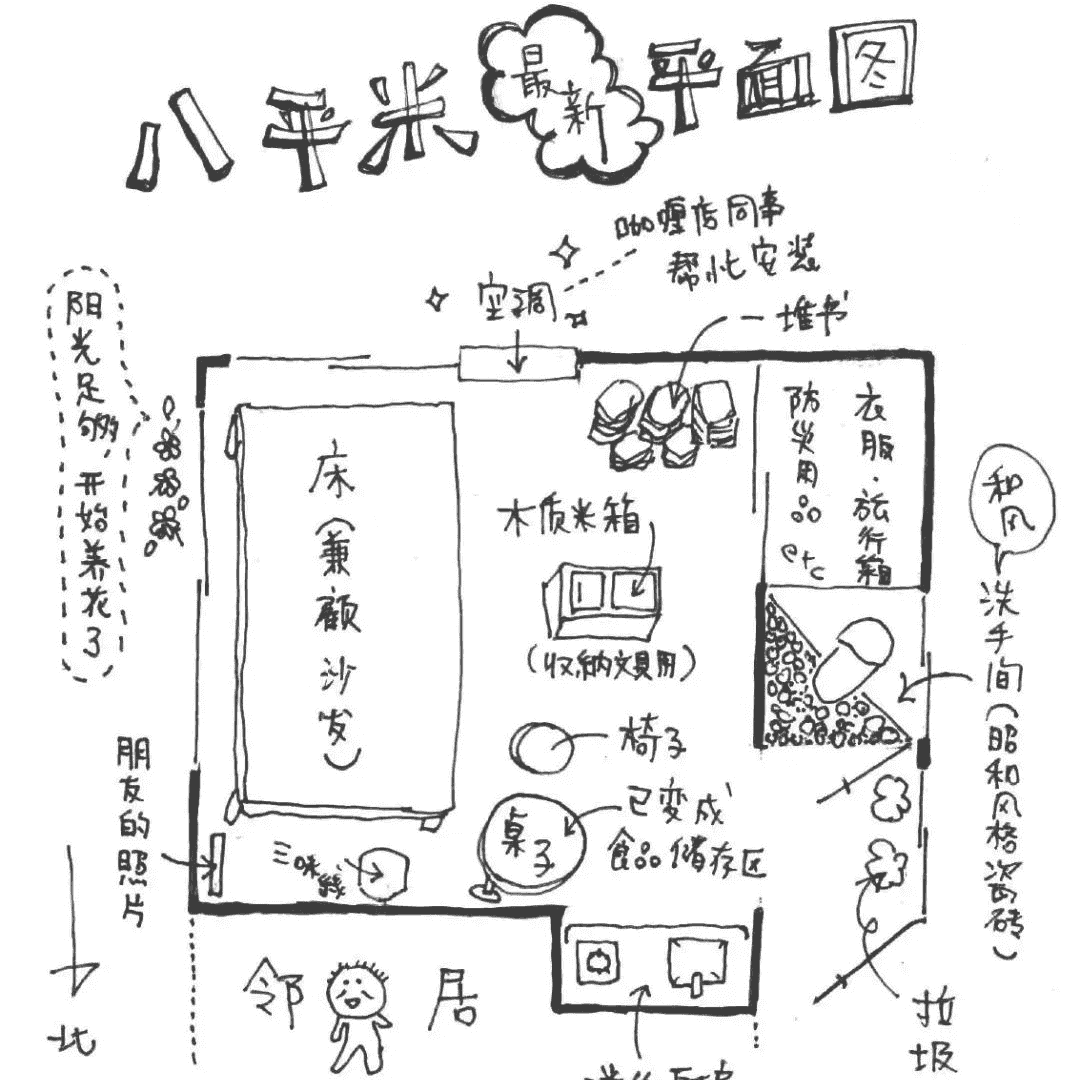 八平米最新平面图
咖喱店同事
帮忙安装
空调
一堆书
阳光足够，开始养花了
床（兼顾沙发）
防灾用品
etc
衣服·旅行箱
和风
洗手间（昭和风格瓷砖）
木质米箱
（收纳文具用）
椅子
桌子
已变成
食品储存区
朋友的照片
三味线
邻居
北
垃圾